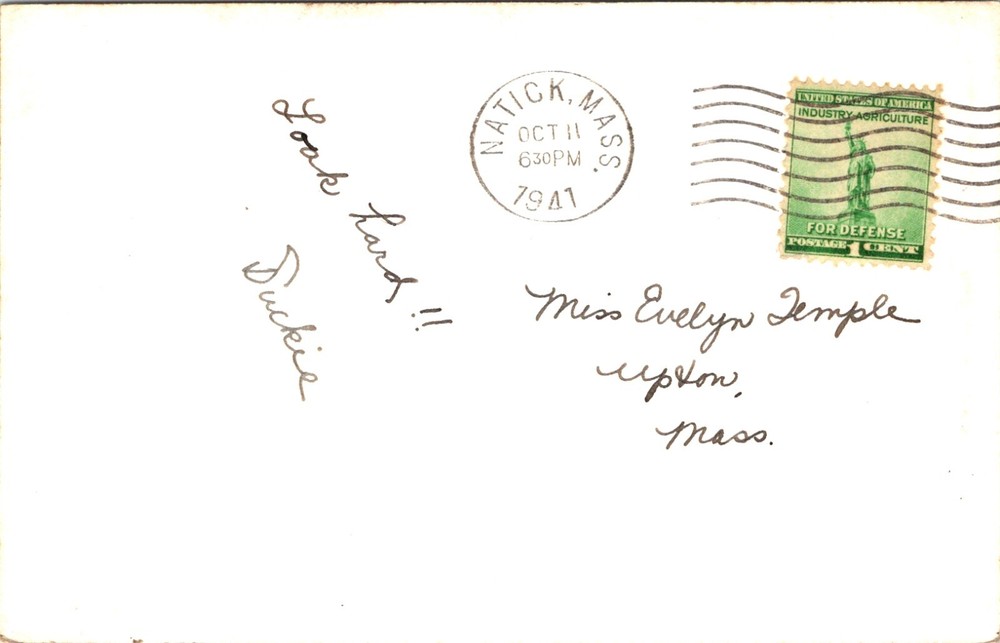 Look hard!!
Duckie
NATICK, MASS.
OCT 11
630PM
1941
UNITED STATES OF AMERICA
INDUSTRY AGRICULTURE
FOR DEFENSE
POSTAGE 1 CENT
Miss Evelyn Temple
Upton,
Mass.